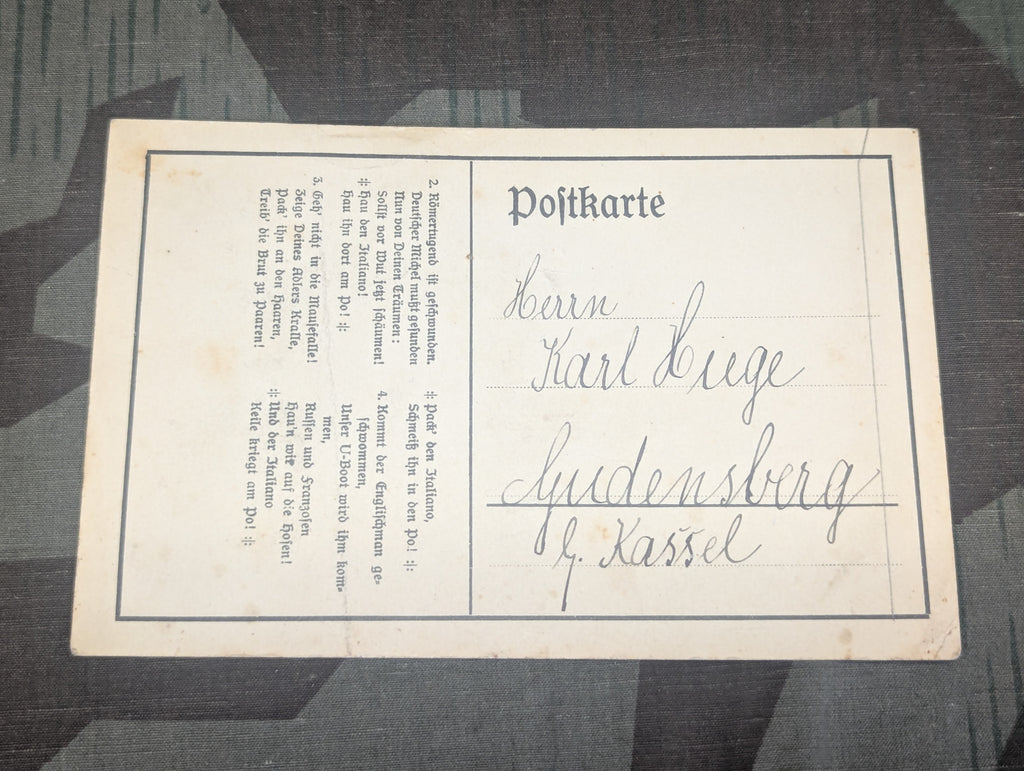 2. Römertugend ist geschwunden.
Deutscher Michel mußt gesunden
Nun von Deinen Träumen:
Sollst vor Wut jetzt schäumen!
:|: Hau den Italiano!
Hau ihn dort am Po! :|:
3. Geh' nicht in die Mausefalle!
Zeige Deines Adlers Kralle,
Pack' ihn an den Haaren,
Treib' die Brut zu Paaren!
:|: Pack' den Italiano,
Schmeiß ihn in den Po! :|:
4. Kommt der Englischman ge-
schwommen,
Unser U-Boot wird ihm kom-
men,
Russen und Franzosen
Hau'n wir auf die Hosen!
:|: Und der Italiano
Keile kriegt am Po! :|:
Postkarte
Herrn
Karl Huge
Gudensberg
b. Kassel